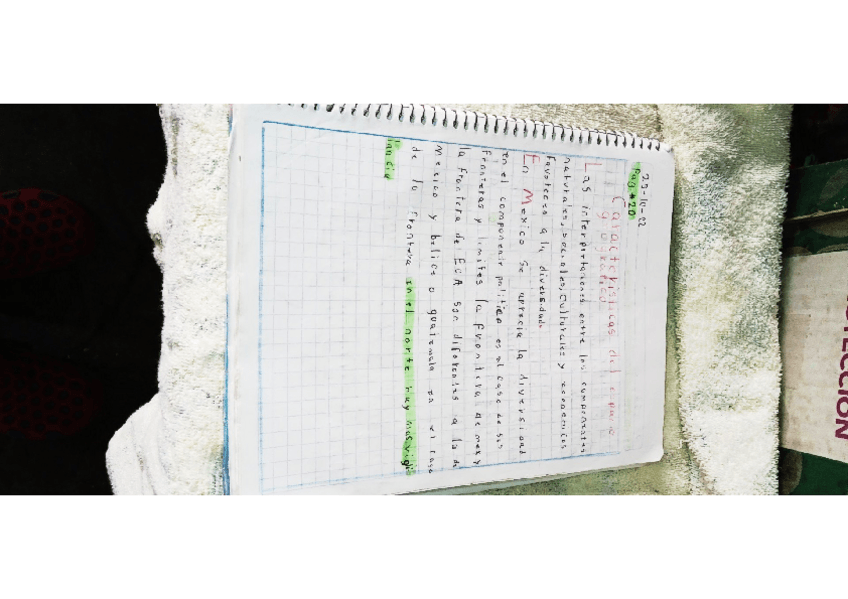 29-11-22
Pag #20
Características del espacio
geográfico
Las interpretaciones entre los componentes
naturales, sociales, culturales y economicos
favorecen a la diversidad.
En Mexico se aprecia la diversidad
en el componente politico es el caso de sus
fronteras y limites la frontera de mexy
la frontera de EUA son diferentes a la de
Mexico y belice o guatemala en el caso
de la frontera en el norte hay mas vigi
lancia
OTECCIÓN